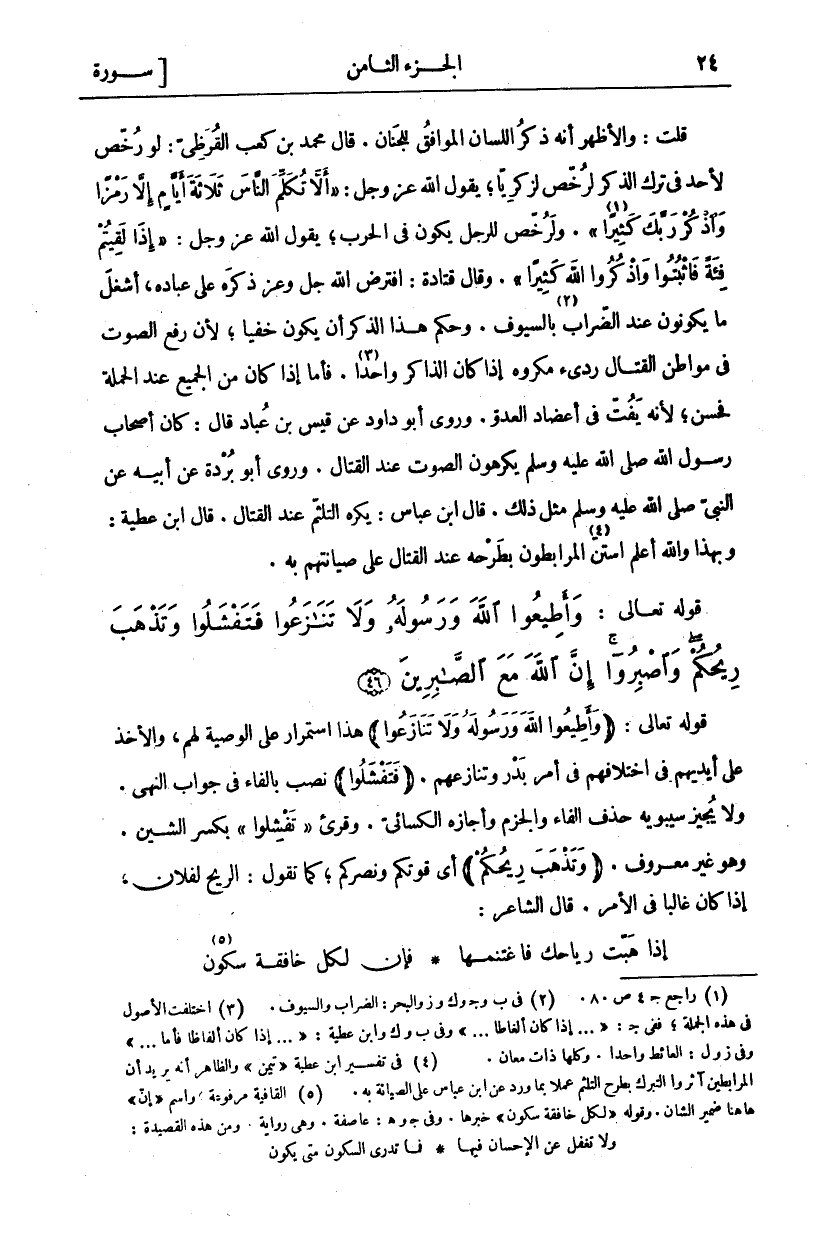 ٢٤ الجــزء الثامن [ ســورة
قلت : والأظهر أنه ذكرُ اللسان الموافقُ للجنان . قال محمد بن كعب القُرَظِيّ : لو رُخّص
لأحد فى ترك الذكر لرُخّص لزكريّا ؛ يقول الله عز وجل : « أَلَّا تُكَلِّمَ النَّاسَ ثَلَاثَةَ أَيَّامٍ إِلَّا رَمْزًا
وَاذْكُرْ رَبَّكَ كَثِيرًا (١) » . ولَرُخّص للرجل يكون فى الحرب ؛ يقول الله عز وجل : « إِذَا لَقِيتُمْ
فِئَةً فَاثْبُتُوا وَاذْكُرُوا اللَّهَ كَثِيرًا » . وقال قتادة : افترض الله جل وعز ذكرَه على عباده ، أشغلَ
ما يكونون عند الضّراب (٢) بالسيوف . وحكم هــذا الذكر أن يكون خفيا ؛ لأن رفع الصوت
فى مواطن القتــال ردىء مكروه إذا كان الذاكر واحدا (٣) . فأما إذا كان من الجميع عند الحملة
فحسن ؛ لأنه يَفُتّ فى أعضاد العدوّ . وروى أبو داود عن قيس بن عُباد قال : كان أصحاب
رســول الله صلى الله عليه وسلم يكرهون الصوت عند القتال . وروى أبو بُرْدة عن أبيــه عن
النبىّ صلى الله عليه وسلم مثل ذلك . قال ابن عباس : يكره التلثّم عند القتال . قال ابن عطية :
وبهذا والله أعلم استنّ (٤) المرابطون بطَرْحه عند القتال على صيانتهم به .
قوله تعــالى : وَأَطِيعُوا ٱللَّهَ وَرَسُولَهُۥ وَلَا تَنَـٰزَعُوا فَتَفْشَلُوا وَتَذْهَبَ
رِيحُكُمْ ۖ وَٱصْبِرُوٓا ۚ إِنَّ ٱللَّهَ مَعَ ٱلصَّـٰبِرِينَ ٤٦
قوله تعالى : ﴿ وَأَطِيعُوا اللَّهَ وَرَسُولَهُ وَلَا تَنَازَعُوا ﴾ هذا استمرار على الوصية لهم ، والأخذ
على أيديهم فى اختلافهم فى أمر بَدْر وتنازعهم . ﴿ فَتَفْشَلُوا ﴾ نصب بالفاء فى جواب النهى .
ولا يُجيز سيبويه حذف الفاء والجزم وأجازه الكسائىّ . وقرئ « تَفْشِلوا » بكسر الشــين .
وهو غير معــروف . ﴿ وَتَذْهَبَ رِيحُكُمْ ﴾ أى قوتكم ونصركم ؛ كما تقول : الريح لفلان ،
إذا كان غالبا فى الأمر . قال الشاعر :
إذا هَبّت رياحك فاغتنمــها * فإن لكل خافقــة سكون (٥)
(١) راجع جـ ٤ ص ٨٠ . (٢) فى ب وجـ وك وز والبحر : الضراب والسيوف . (٣) اختلفت الأصول
فى هذه الجملة ؛ ففى جـ : « ... إذا كان ألفاطا ... » وفى ب وك وابن عطية : « ... إذا كان ألفاظا فأما ... »
وفى ز ول : العائط واحدا . وكلها ذات معان . (٤) فى تفسير ابن عطية « تيمن » والظاهر أنه يريد أن
المرابطين آثروا التبرك بطرح التلثم عملا بما ورد عن ابن عباس على الصيانة به . (٥) القافية مرفوعة ؛ واسم « إنّ »
هاهنا ضمير الشان . وقوله « لكل خافقة سكون » خبرها . وفى جـ وهـ : عاصفة . وهى رواية . ومن هذه القصيدة :
ولا تغفل عن الإحسان فيها * فــا تدرى السكون متى يكون